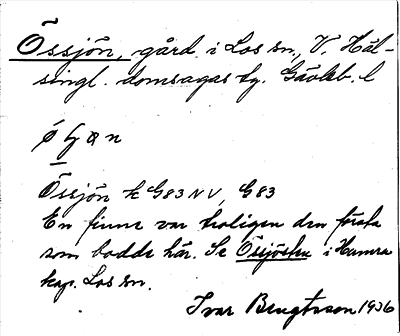 Össjön, gård i Los sn, V. Häl-
singl. domsagas tg. Gävleb. l
Össjön k G83 NV, G83
En finne var troligen den första
som bodde här. Se Össjöskn i Hamra
kap. Los sn.
Ivar Bengtsson 1936